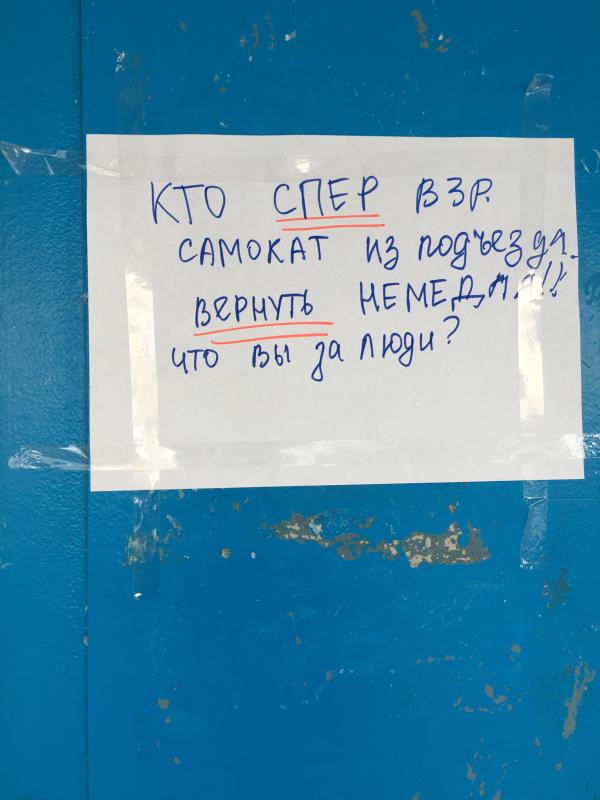 КТО СПЕР ВЗР.
САМОКАТ ИЗ ПОДЪЕЗДА.
ВЕРНУТЬ НЕМЕДЛ!!
ЧТО ВЫ ЗА ЛЮДИ?